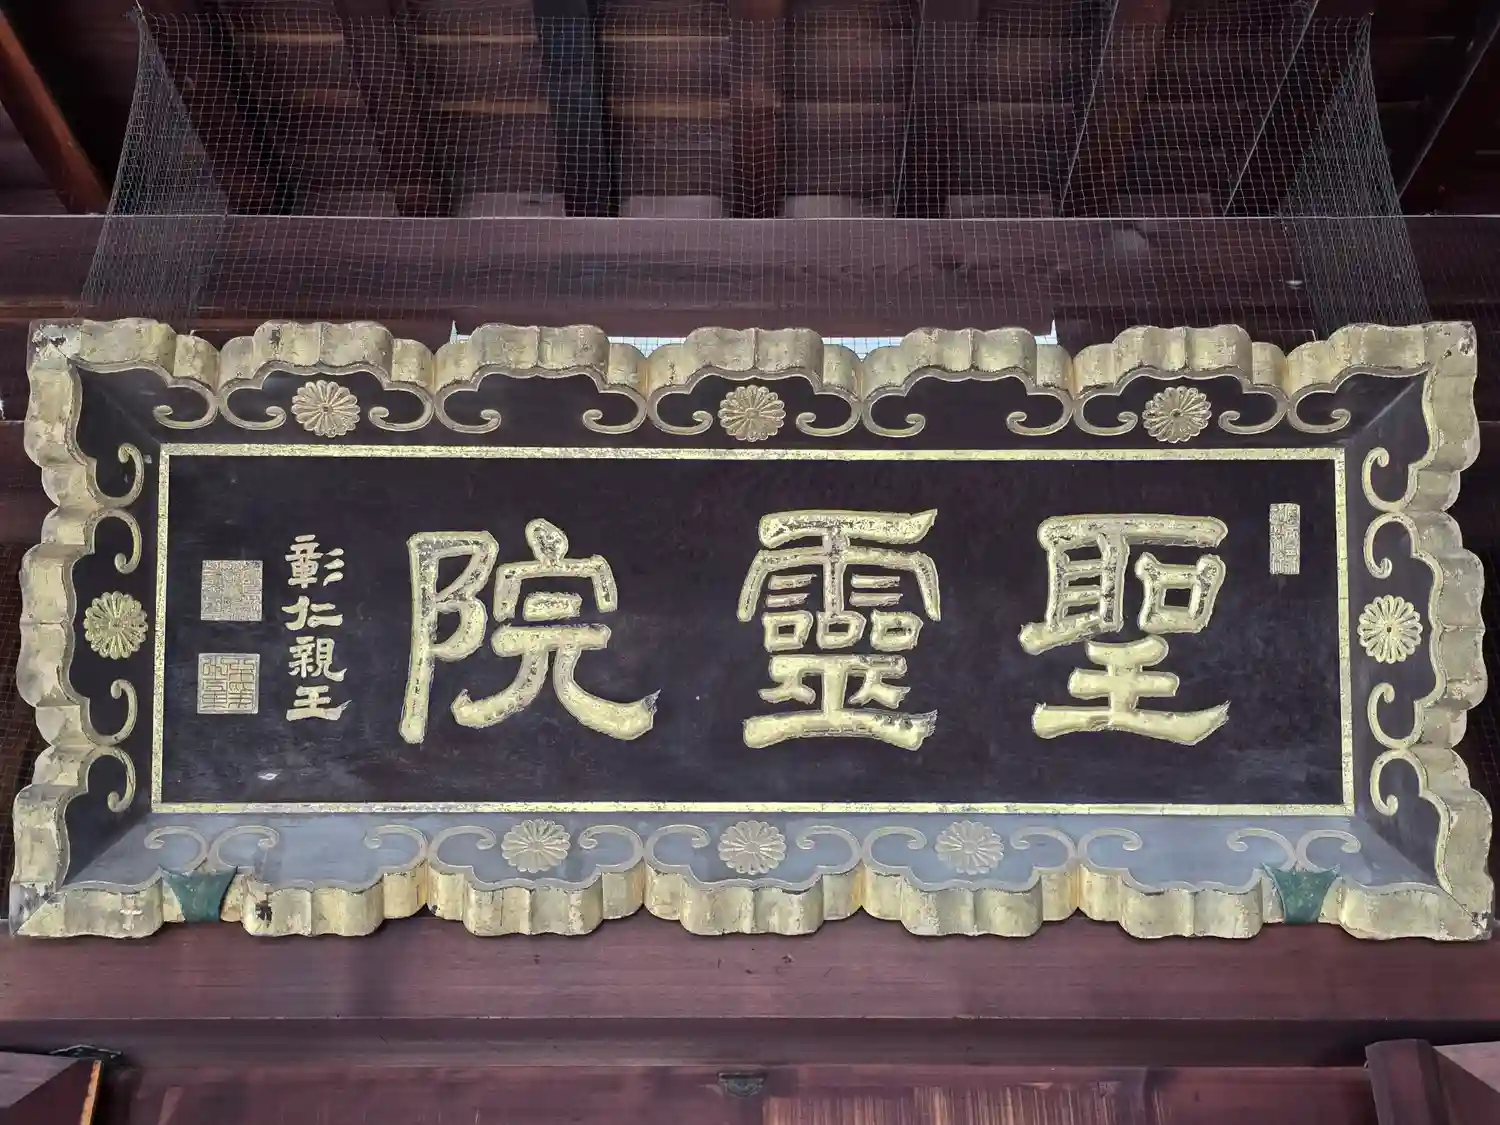 聖靈院
彰仁親王